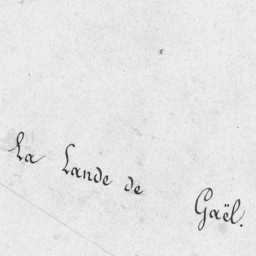 La Lande de Gaël.